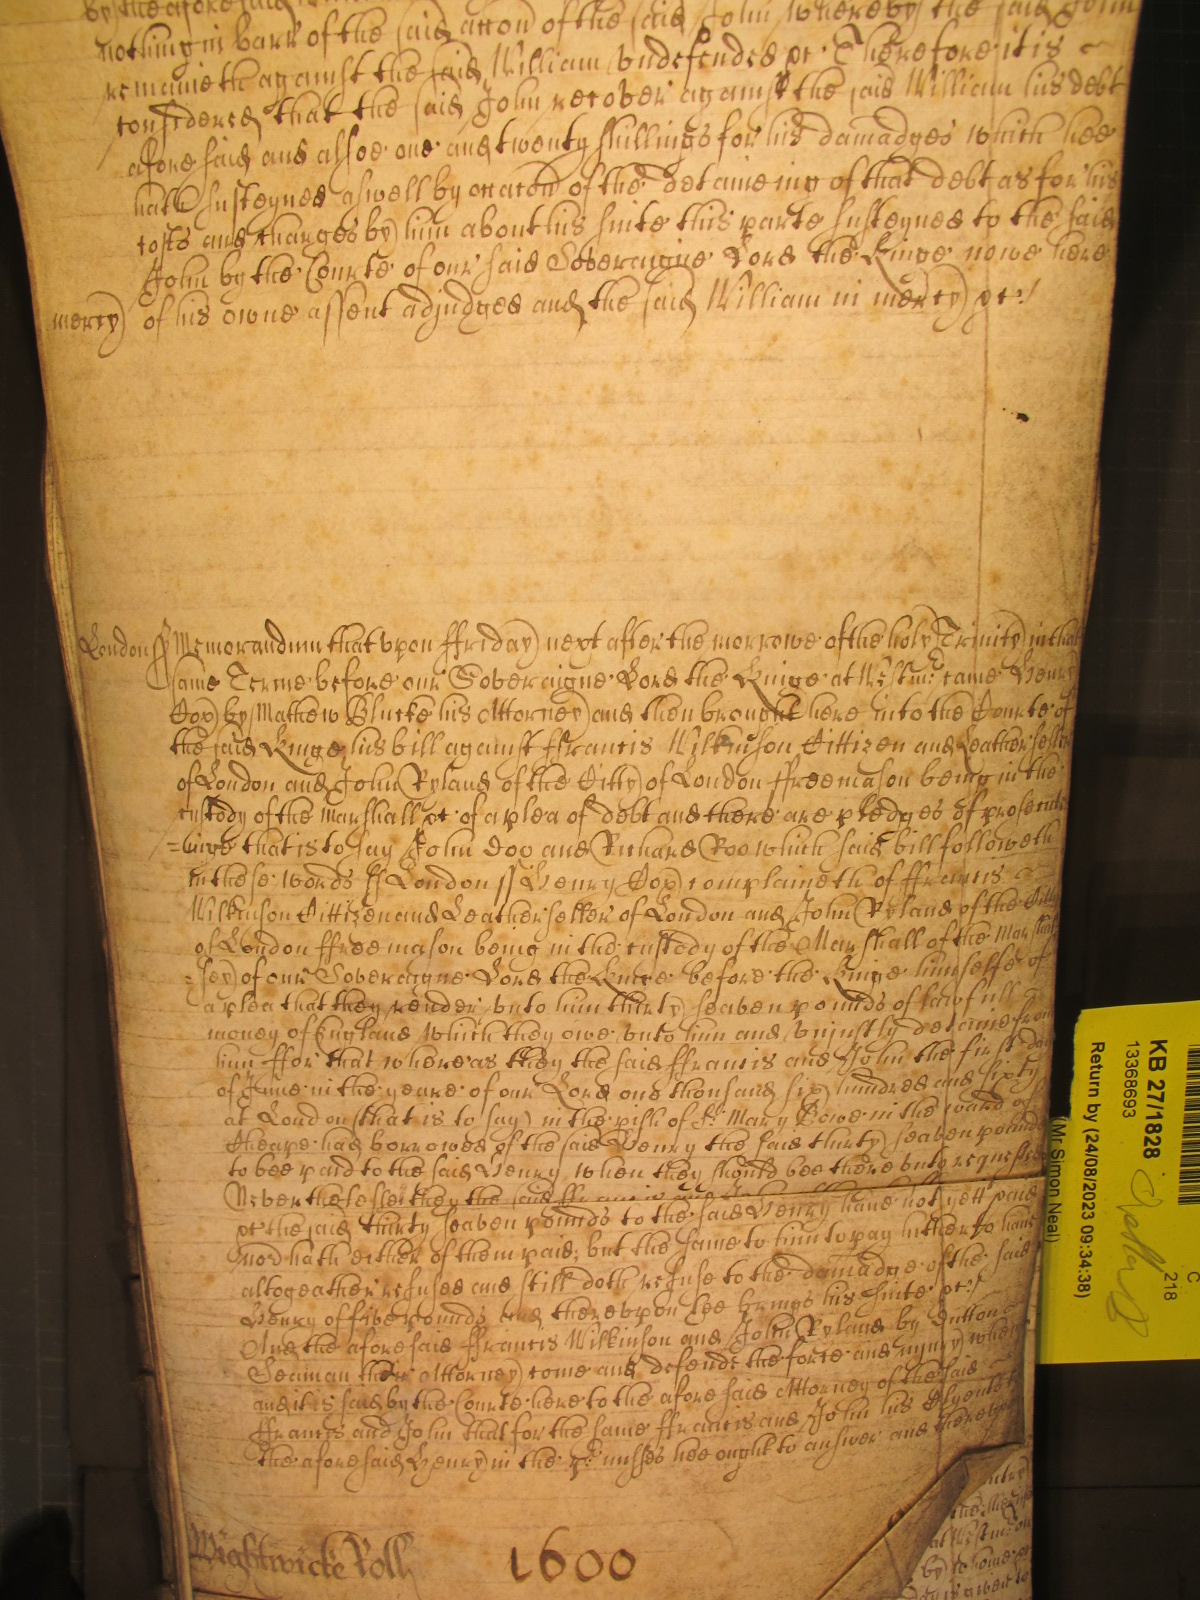 by the aforesaid
nothing in barr of the said accon of the said John whereby the said John
remaineth against the said William undefended &c Therefore it is
considered that the said John recover against the said William his debt
aforesaid and alsoe one and twenty shillings for his damadges which hee
hath susteyned aswell by occacon of the detaineing of that debt as for his
costs and charges by him about his suite this parte susteyned to the said
John by the Courte of our said Soveraigne Lord the Kinge nowe here
mercy of his owne assent adjudged and the said William in mercy &c:/
London ss Memorandum that upon ffriday next after the morrowe of the holy Trinity in that
same Terme before our Soveraigne Lord the Kinge at Westmr: came Henry
Cox by Mathew Blucke his Attorney and then brought here into the Courte of
the said Kinge his bill against ffrancis Wilkinson Cittizen and Leatherseller
of London and John Ryland of the Citty of London ffreemason being in the
custody of the Marshall &c of a plea of debt and there are pledges of prosecut
=inge that is to say John Doo and Richard Roo which said bill followeth
in these words ss London ss Henry Cox complaineth of ffrancis
Wilkinson Cittizen and Leatherseller of London and John Ryland of the Citty
of London ffreemason being in the custody of the Marshall of the Marshal
=sey of our Soveraigne Lord the Kinge before the Kinge himselfe of
a plea that they render unto him thirty seaven pounds of lawfull
money of England which they owe unto him and unjustly detaine from
him ffor that whereas they the said ffrancis and John the first day
of June in the yeare of our Lord one thousand six hundred and sixty
at London (that is to say) in the pish of St: Mary Bowe in the ward of
Cheape had borrowed of the said Henry the said thirty seaven pounds
to bee paid to the said Henry when they should bee thereunto requested
Neverthelesse they the said ffrancis and John
&c the said thirty seaven pounds to the said Henry have not yett paid
nor hath either of them paid; but the same to him to pay hitherto have
altogeather refused and still doth refuse to the damadge of the said
Henry of five pounds And thereupon hee brings his suite &c:/
And the aforesaid ffrancis Wilkinson and John Ryland by Dutton
Seaman their Attorney come and defende the force and injury when
and it is said by the Courte here to the aforesaid Attorney of the said
ffrancis and John that for the same ffrancis and John his Clyents to
the aforesaid Henry in the pr: misses hee ought to answer and thereupon
Wightwicke Roll 1600
KB 27/1828
13368693
Return by (24/08/2023 09:34:38)
(Mr Simon Neal)
218
C